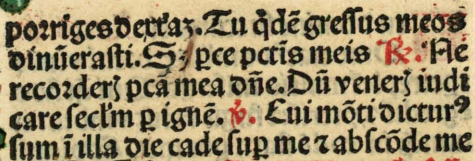 porriges dextraꝫ. Tu q̃dẽ gressus meos
dinũerasti. Sꝫ ꝑce pctĩs meis ℟. Ne
recorderꝭ pcã mea dñe. Dũ venerꝭ iudi
care secl̃m ꝑ ignẽ. ℣. Cui mõti dicturꝰ
sum ĩ illa die cade suꝑ me ⁊ abscõde me